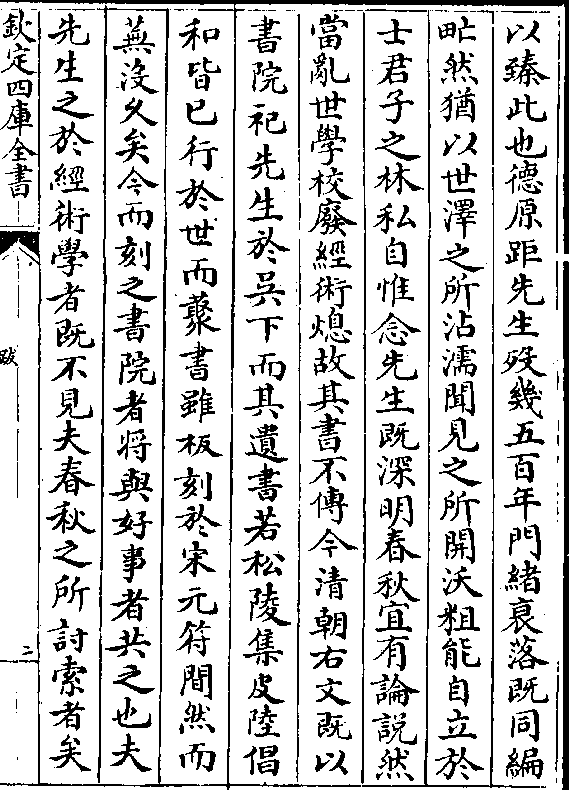 以臻此也德原距先生歿幾五百年門緒衰落既同編
甿然猶以世澤之所沾濡聞見之所開沃粗能自立於
士君子之林私自惟念先生既深明春秋宜有論說然
當亂世學校廢經術熄故其書不傳今清朝右文既以
書院祀先生於吳下而其遺書若松陵集皮陸倡
和皆已行於世而藂書雖板刻於宋元符間然而
蕪沒久矣今而刻之書院者將與好事者共之也夫
先生之於經術學者既不見夫春秋之所討索者矣
欽定四庫全書
跋
二